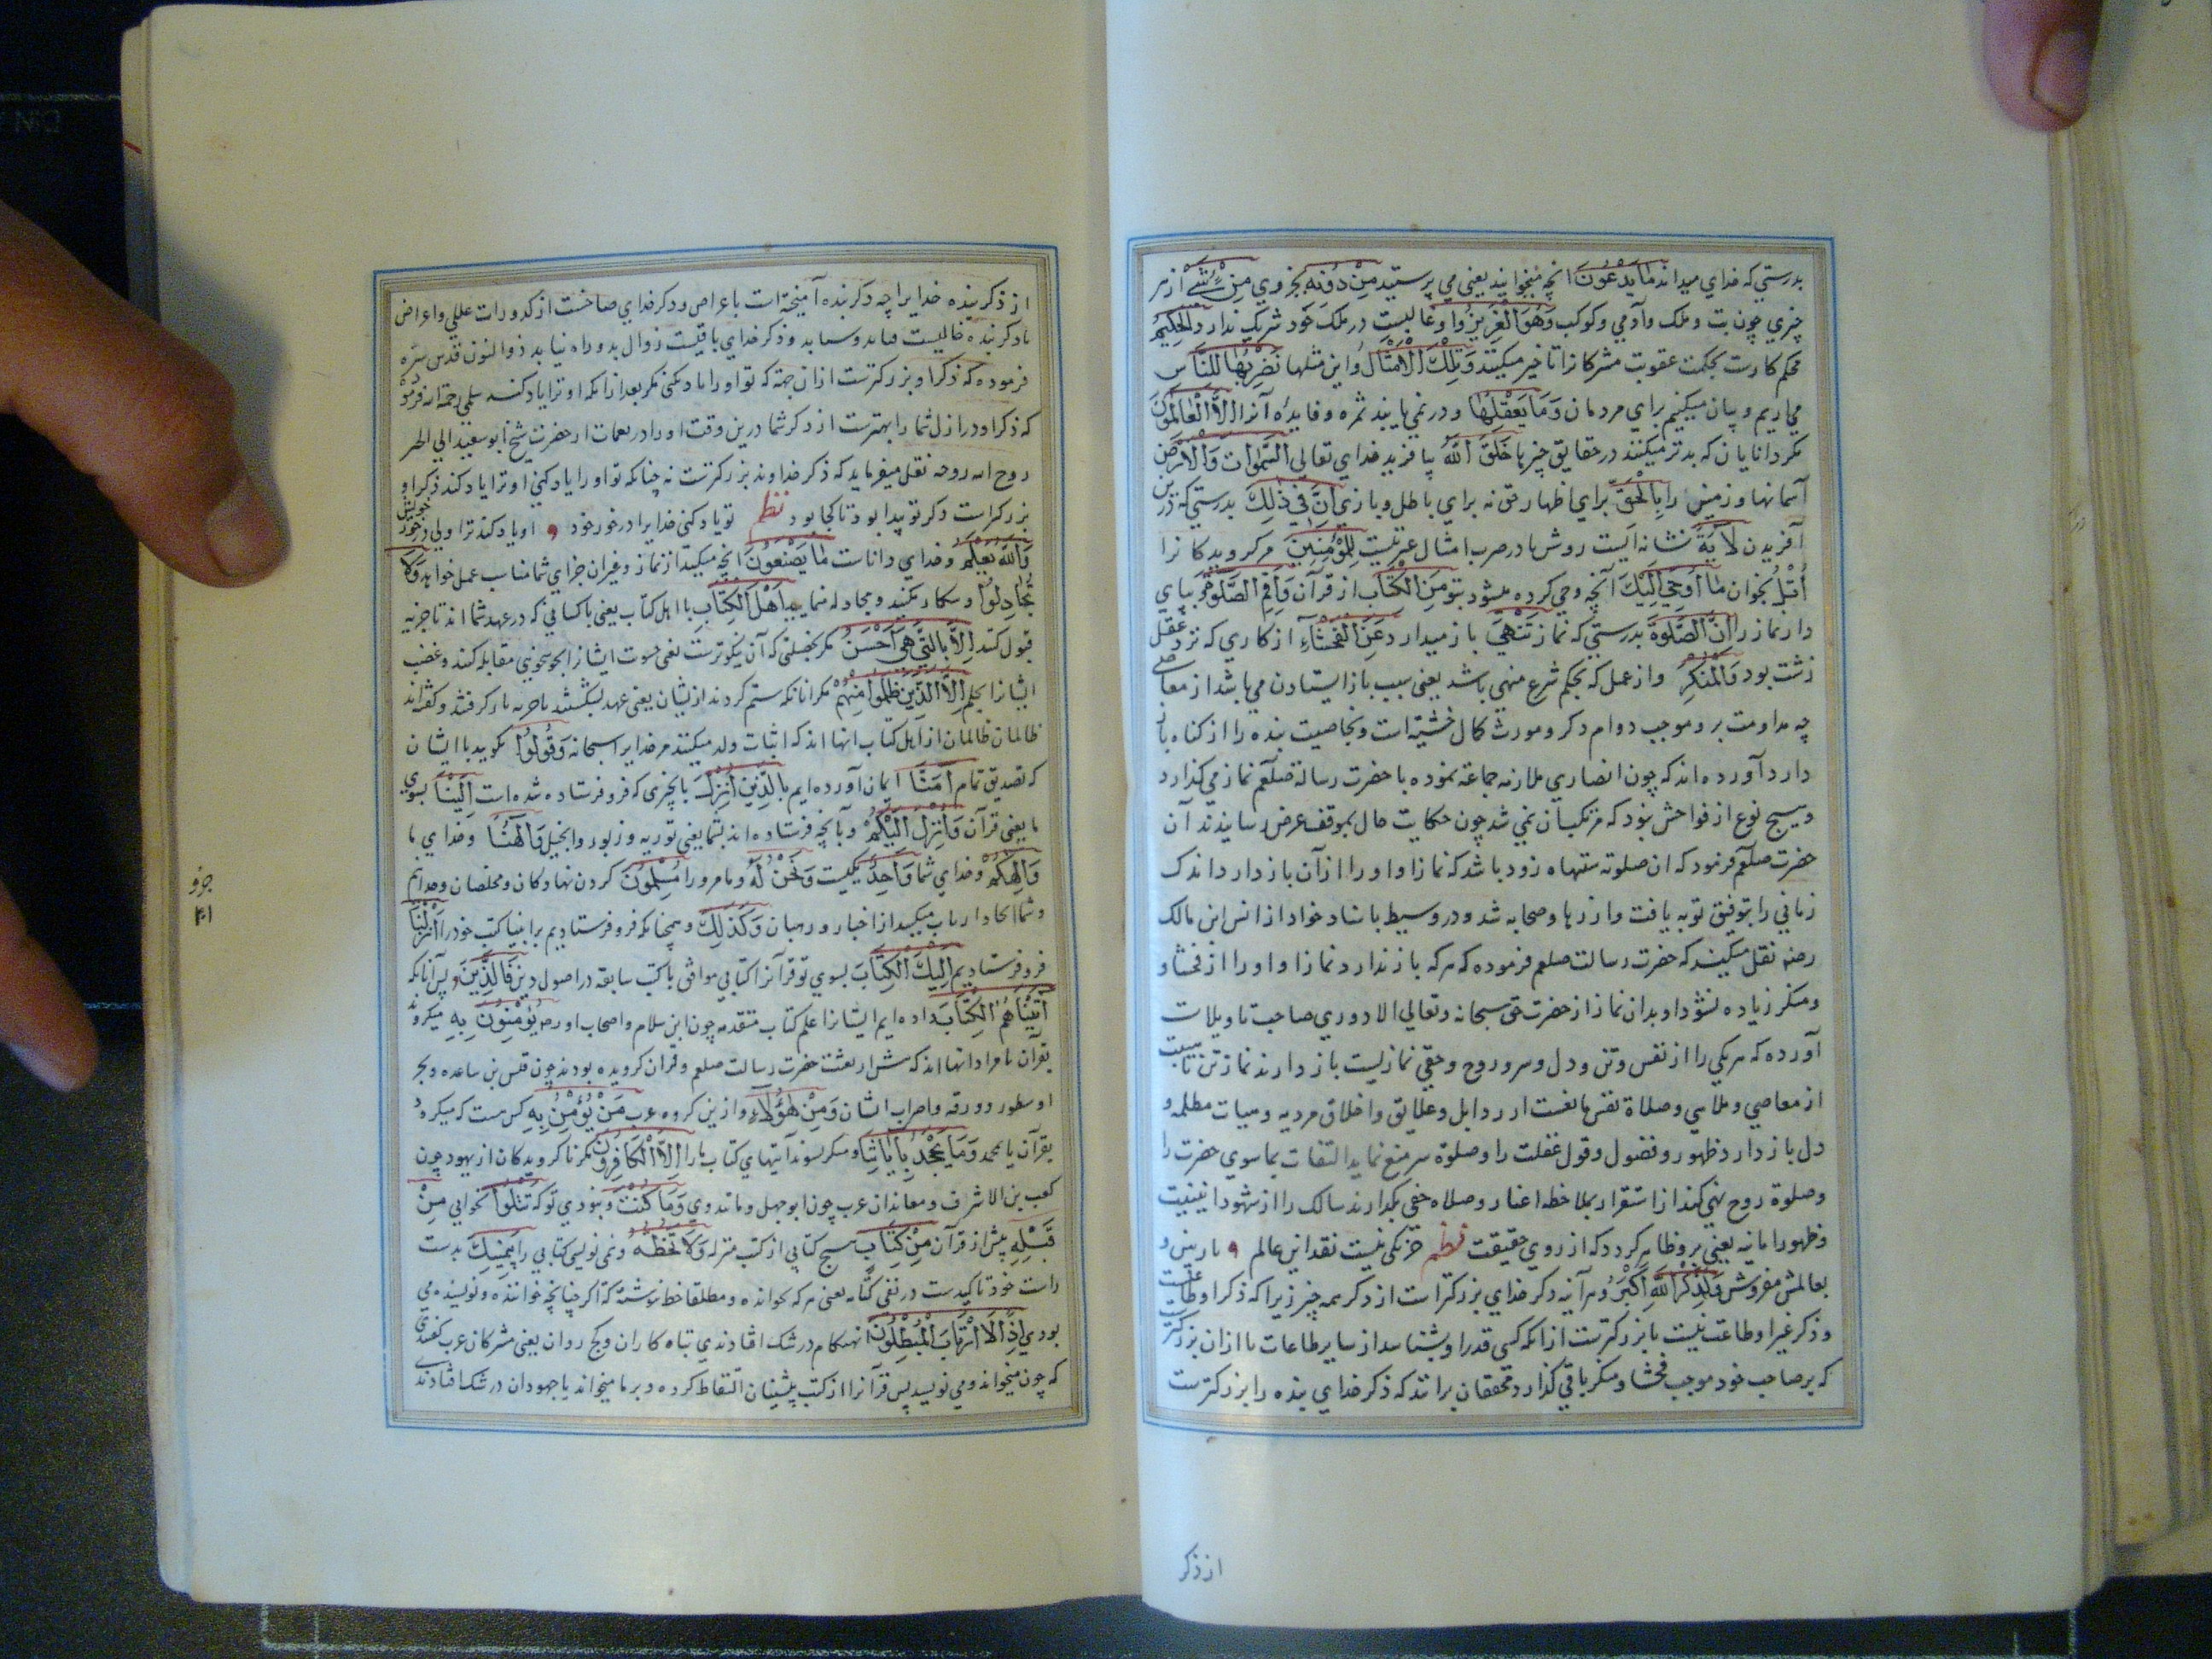 بدرستي كه خداي ميداند مَا يَدْعُونَ انچه ميخوانيد يعني مي پرستيد مِنْ دُونِهِ بجز وي مِنْ شَيْءٍ از هر
چيزي چون بت و ملك وآدمي وكوكب وَهُوَ الْعَزِيزُ واو غالبست در ملك خود شريك ندارد الْحَكِيمُ
محكم كارست بحكمت عقوبت مشركانرا تاخير ميكند وَتِلْكَ الْأَمْثَالُ واين مثلها نَضْرِبُهَا لِلنَّاسِ
مي اريم وبيان ميكنيم براي مردمان وَمَا يَعْقِلُهَا ودر نمي يابند ثمره وفايده آنرا إِلَّا الْعَالِمُونَ
مكر دانايان كه تدبر ميكنند در حقايق چيزها خَلَقَ اللَّهُ بيافريد خداي تعالي السَّمٰوَاتِ وَالْأَرْضَ
آسمانها وزمين را بِالْحَقِّ براي اظهار حق نه براي باطل وبازي إِنَّ فِي ذٰلِكَ بدرستي كه درين
آفريدن لَآيَةً نشانه ايست روشن يا در ضرب امثال عبرتيست لِلْمُؤْمِنِينَ مر كرويدكانرا
اُتْلُ بخوان مَا أُوحِيَ إِلَيْكَ آنچه وحي كرده ميشود بتو مِنَ الْكِتَابِ از قرآن وَأَقِمِ الصَّلٰوةَ بپاي
دار نماز را إِنَّ الصَّلٰوةَ بدرستي كه نماز تَنْهٰى باز ميدارد عَنِ الْفَحْشَاءِ از كاري كه نزد عقل
زشت بود وَالْمُنْكَرِ واز عمل كه بحكم شرع منهي باشد يعني سبب باز ايستادن مي باشد از معاصي
چه مداومت برو موجب دوام ذكر ومورث كمال خشيت است وبخاصيت بنده را از كناه باز
دارد آورده اند كه چون انصاري ملازمه جماعة نموده با حضرت رسالة صلعم نماز مي كذارد
وهيچ نوع از فواحش نبود كه مرتكب آن نمي شد چون حكايت حال بموقف عرض رسانيدند آن
حضرت صلعم فرمود كه ان صلوته ستنهاه زود باشد كه نماز او اورا از آن باز دارد اندك
زماني را بتوفيق توبه يافت واز زهاد صحابه شد ودر وسيط باسناد خود از انس ابن مالك
رضه نقل ميكند كه حضرت رسالت صلعم فرموده كه هر كه باز ندارد نماز او اورا از فحشا و
ومنكر زياده نشود اورا بدان نماز از حضرت حق سبحانه وتعالي الا دوري صاحب تاويلات
آورده كه هر يكي را از نفس وتن ودل وسر وروح وخفي نمازيست باز دارند نماز تن ناهيست
از معاصي وملاهي وصلاة نفس مانعست از رذايل وعلايق واخلاق رديه وهيات مظلمه و
دل باز دارد ظهور وفضول وقول غفلت را وصلوة سر منع نمايد التفات بما سوي حضرت را
وصلوة روح نهي كند از استقرار بملاحظه اغيار وصلاه خفي بكذارند سالك را از شهود اثنينيت
وظهور انانيه يعني برو ظاهر كردد كه از روي حقيقت نظم جز يكي نيست نقد اين عالم باز بين و
بعالمش مفروش وَلَذِكْرُ اللَّهِ أَكْبَرُ وهر آينه ذكر خداي بزركتر است از ذكر همه چيز زيرا كه ذكر او طاعتست
وذكر غير او طاعت نيست يا بزركترست از انكه كسي قدر او بشناسد از ساير طاعات يا ازان بزركتر
كه بر صاحب خود موجب فحشا ومنكر باقي كذارد ومحققان برانند كه ذكر خداي بنده را بزركترست
از ذكر
از ذكر بنده خدايرا چه ذكر بنده آميخته است باعراض وذكر خداي صافست از كدورات علل واعراض
يا ذكر بنده فانيست وذكر خداي باقيست زوال بدو راه نيابد ذوالنون قدس سره
فرموده كه ذكر او بزركترست ازان جهة كه تو اورا ياد نكني مكر بعد ازانكه او ترا ياد كند سلمي رحمة الله فرموده
كه ذكر او در ازل شما را بهترست از ذكر شما درين وقت اورا در نفحات از حضرت شيخ ابوسعيد ابي الخير
روح الله روحه نقل ميفرمايد كه ذكر خداوند بزركترست نه چنانكه تو اورا ياد كني او ترا ياد كند ذكر او
بزركتر است ذكر تو پيدا بود تا كجا بود نظم تو ياد كني خدايرا در خور خود او ياد كند ترا ولي در خور خويش
وَاللَّهُ يَعْلَمُ وخداي داناست مَا يَصْنَعُونَ انچه ميكنيد از نماز وغير آن جزاي شما مناسب عمل خواهد وَلَا
تُجَادِلُوا وپيكار مكنيد ومجادله منماييد أَهْلَ الْكِتَابِ با اهل كتاب يعني با كساني كه در عهد شما اند تا جزيه
قبول كنند إِلَّا بِالَّتِي هِيَ أَحْسَنُ مكر بخصلتي كه آن نيكوترست يعني خشونت ايشانرا بخوشخويي مقابله كنيد وغضب
ايشانرا بحلم إِلَّا الَّذِينَ ظَلَمُوا مِنْهُمْ مكر انانكه ستم كردند از ايشان يعني عهد بشكستند يا جزيه باز كرفتند وكفته اند
ظالمان از اهل كتاب انها اند كه اثبات ولد ميكنند مر خدايرا سبحانه وَقُولُوا بكوييد با ايشان
كه تصديق تمام آمَنَّا ايمان آورده ايم بِالَّذِي أُنْزِلَ بانچيزي كه فرو فرستاده شده است إِلَيْنَا بسوي
ما يعني قرآن وَأُنْزِلَ إِلَيْكُمْ وبآنچه فرستاده اند بشما يعني توريه وزبور وانجيل وَإِلٰهُنَا وخداي ما
وَإِلٰهُكُمْ وخداي شما وَاحِدٌ يكيست وَنَحْنُ لَهُ وما مر ورا مُسْلِمُونَ كردن نهادكان ومخلصان وخدائيم
وشما اتخاذ ارباب ميكنيد از احبار ورهبان وَكَذٰلِكَ وهمچنانكه فرو فرستاديم بر انبيا كتب خود را أَنْزَلْنَا
فرو فرستاديم إِلَيْكَ الْكِتَابَ بسوي تو قرآنرا كتابي موافق با كتب سابقه در اصول دين فَالَّذِينَ وپس آنانكه
آتَيْنَاهُمُ الْكِتَابَ داده ايم ايشانرا علم كتاب متقدمه چون ابن سلام واصحاب او رضه يُؤْمِنُونَ بِهِ ميكروند
بقرآن يا مراد انها اند كه پيش از بعثت حضرت رسالت صلعم وقران كرويده بودند چون قس بن ساعده وبحيرا
او نسطور وورقه واضراب ايشان وَمِنْ هٰؤُلَاءِ وازين كروه عرب مَنْ يُؤْمِنُ بِهِ كس هست كه ميكرود
بقرآن يا بمحمد وَمَا يَجْحَدُ بِآيَاتِنَا ومنكر نشوند آيتهاي كتاب ما را إِلَّا الْكَافِرُونَ مكر ناكرويدكان از يهود چون
كعب بن الاشرف ومعاندان عرب چون ابوجهل ومانند وي وَمَا كُنْتَ ونبودي تو كه تَتْلُوا بخواني مِنْ
قَبْلِهِ پيش از قرآن مِنْ كِتَابٍ هيچ كتابي از كتب منزله وَلَا تَخُطُّهُ ونمي نويسي كتابي را بِيَمِينِكَ بدست
راست خود تاكيدست در نفي كتابه يعني هركه نخوانده ومطلقا خط ننوشته كه اكر چنانچه خواننده ونويسنده مي
بودي إِذًا لَارْتَابَ الْمُبْطِلُونَ انهنكام در شك افتادندي تباه كاران وكج روان يعني مشركان عرب كفتندي
كه چون ميخواند ومي نويسد پس قرآنرا از كتب پيشينيان التقاط كرده وبر ما ميخواند يا جهودان در شك افتادندي
جزو
۲۱